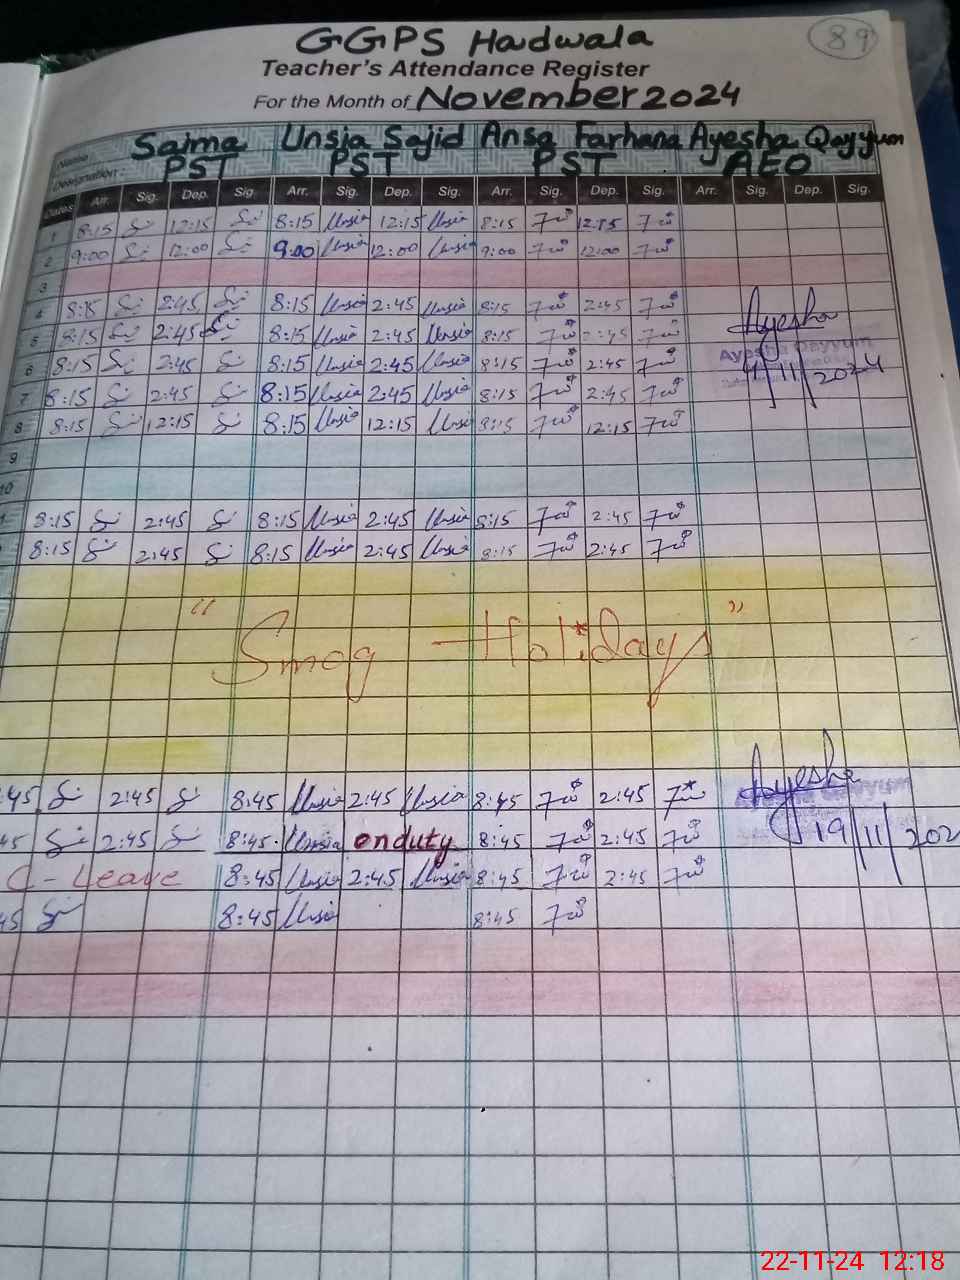 89
GGPS Hadwala
Teacher's Attendance Register
For the Month of November 2024
Name Saima Unsia Sajid Ansa Farhana Ayesha Qayyum
Designation: PST PST PST AEO
Dates Arr. Sig. Dep. Sig. Arr. Sig. Dep. Sig. Arr. Sig. Dep. Sig. Arr. Sig. Dep. Sig.
1 8:15 12:15 8:15 Unsia 12:15 Unsia 8:15 12:15
2 9:00 12:00 9:00 Unsia 12:00 Unsia 9:00 12:00
3
4 8:15 2:45 8:15 Unsia 2:45 Unsia 8:15 2:45
5 8:15 2:45 8:15 Unsia 2:45 Unsia 8:15 2:45 Ayesha
6 8:15 2:45 8:15 Unsia 2:45 Unsia 8:15 2:45 Ayesha Qayyum
7 8:15 2:45 8:15 Unsia 2:45 Unsia 8:15 2:45 4/11/2024
8 8:15 12:15 8:15 Unsia 12:15 Unsia 8:15 12:15
9
10
8:15 2:45 8:15 Unsia 2:45 Unsia 8:15 2:45
8:15 2:45 8:15 Unsia 2:45 Unsia 8:15 2:45
"Smog Holidays"
:45 2:45 8:45 Unsia 2:45 Unsia 8:45 2:45 Ayesha
45 2:45 8:45 Unsia onduty 8:45 2:45 19/11/202
C-Leave 8:45 Unsia 2:45 Unsia 8:45 2:45
45 8:45 Unsia 8:45
22-11-24 12:18